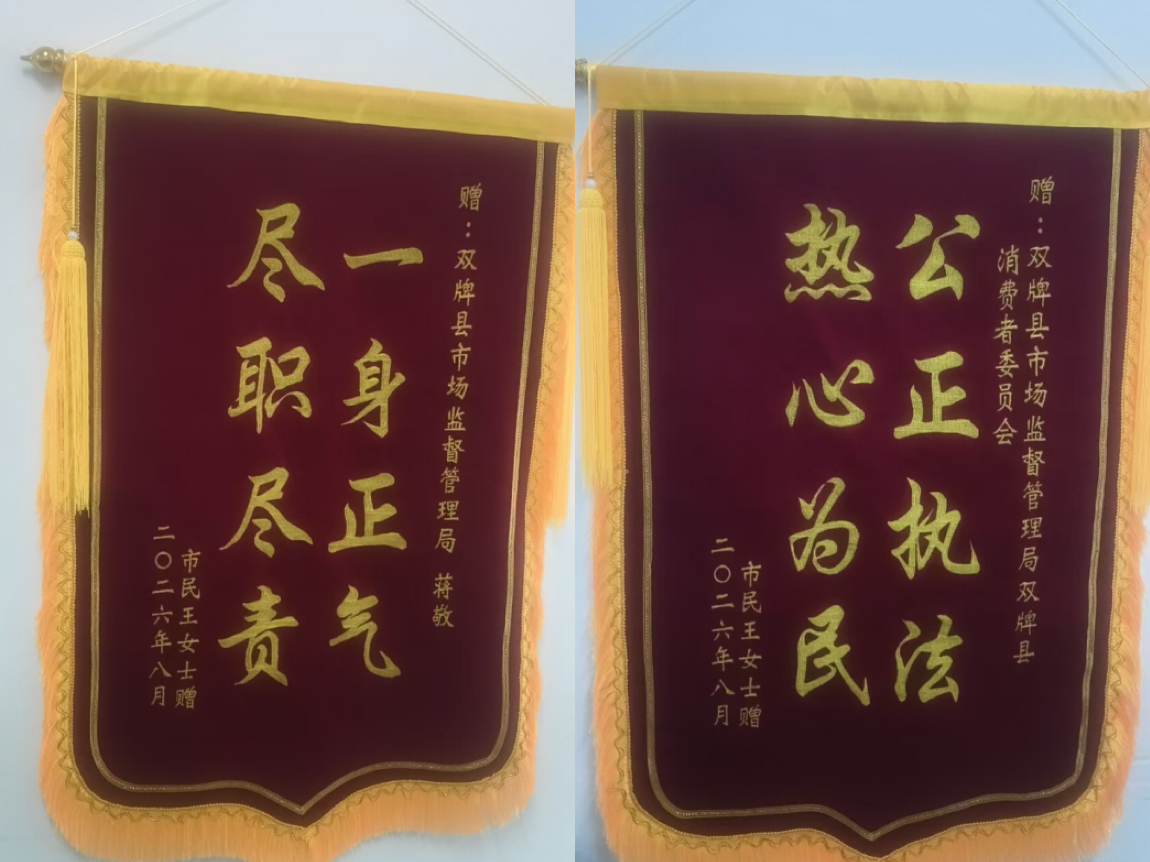 赠：双牌县市场监督管理局 蒋敬
一身正气
尽职尽责
市民王女士赠
二〇二六年八月
赠：双牌县市场监督管理局双牌县
消费者委员会
公正执法
热心为民
市民王女士赠
二〇二六年八月